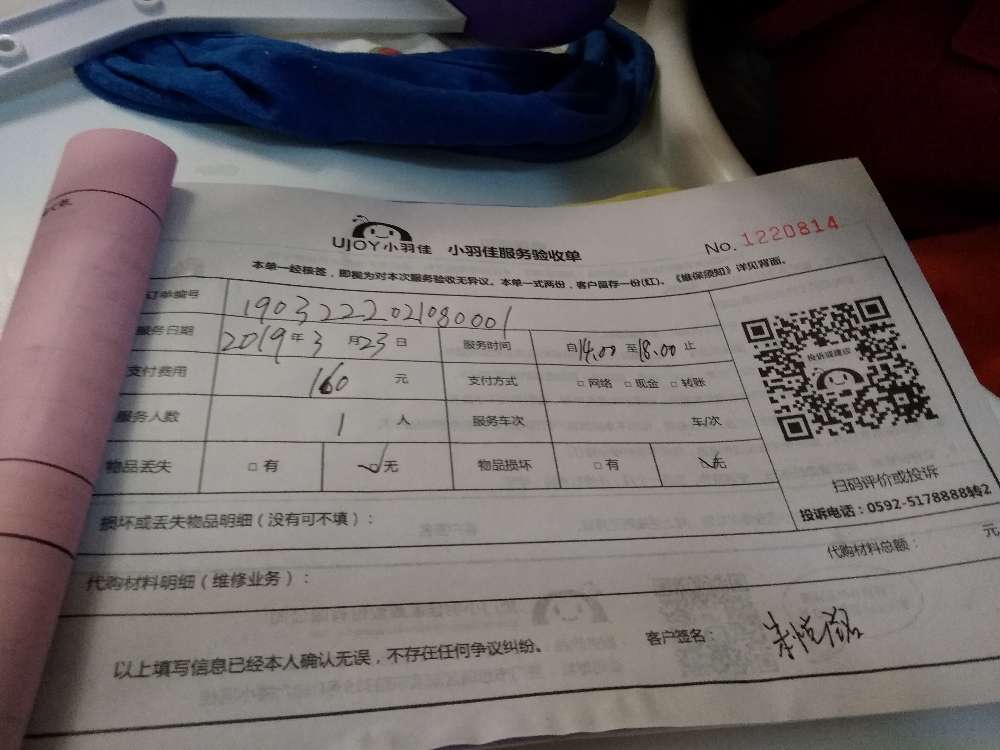 UJOY小羽佳 小羽佳服务验收单 No. 1220814
本单一经核签，即视为对本次服务验收无异议。本单一式两份，客户留存一份(红)。《维保须知》详见背面。
订单编号 1903222021080001
服务日期 2019年3月23日 服务时间 自14.00至18.00止
支付费用 160元 支付方式 □网络 □现金 □转账
服务人数 1人 服务车次 车/次
物品丢失 □有 ☑无 物品损坏 □有 ☑无
投诉或建议
扫码评价或投诉
投诉电话：0592-5178888转2
损坏或丢失物品明细（没有可不填）：
代购材料明细（维修业务）： 代购材料总额： 元
以上填写信息已经本人确认无误，不存在任何争议纠纷。 客户签名：